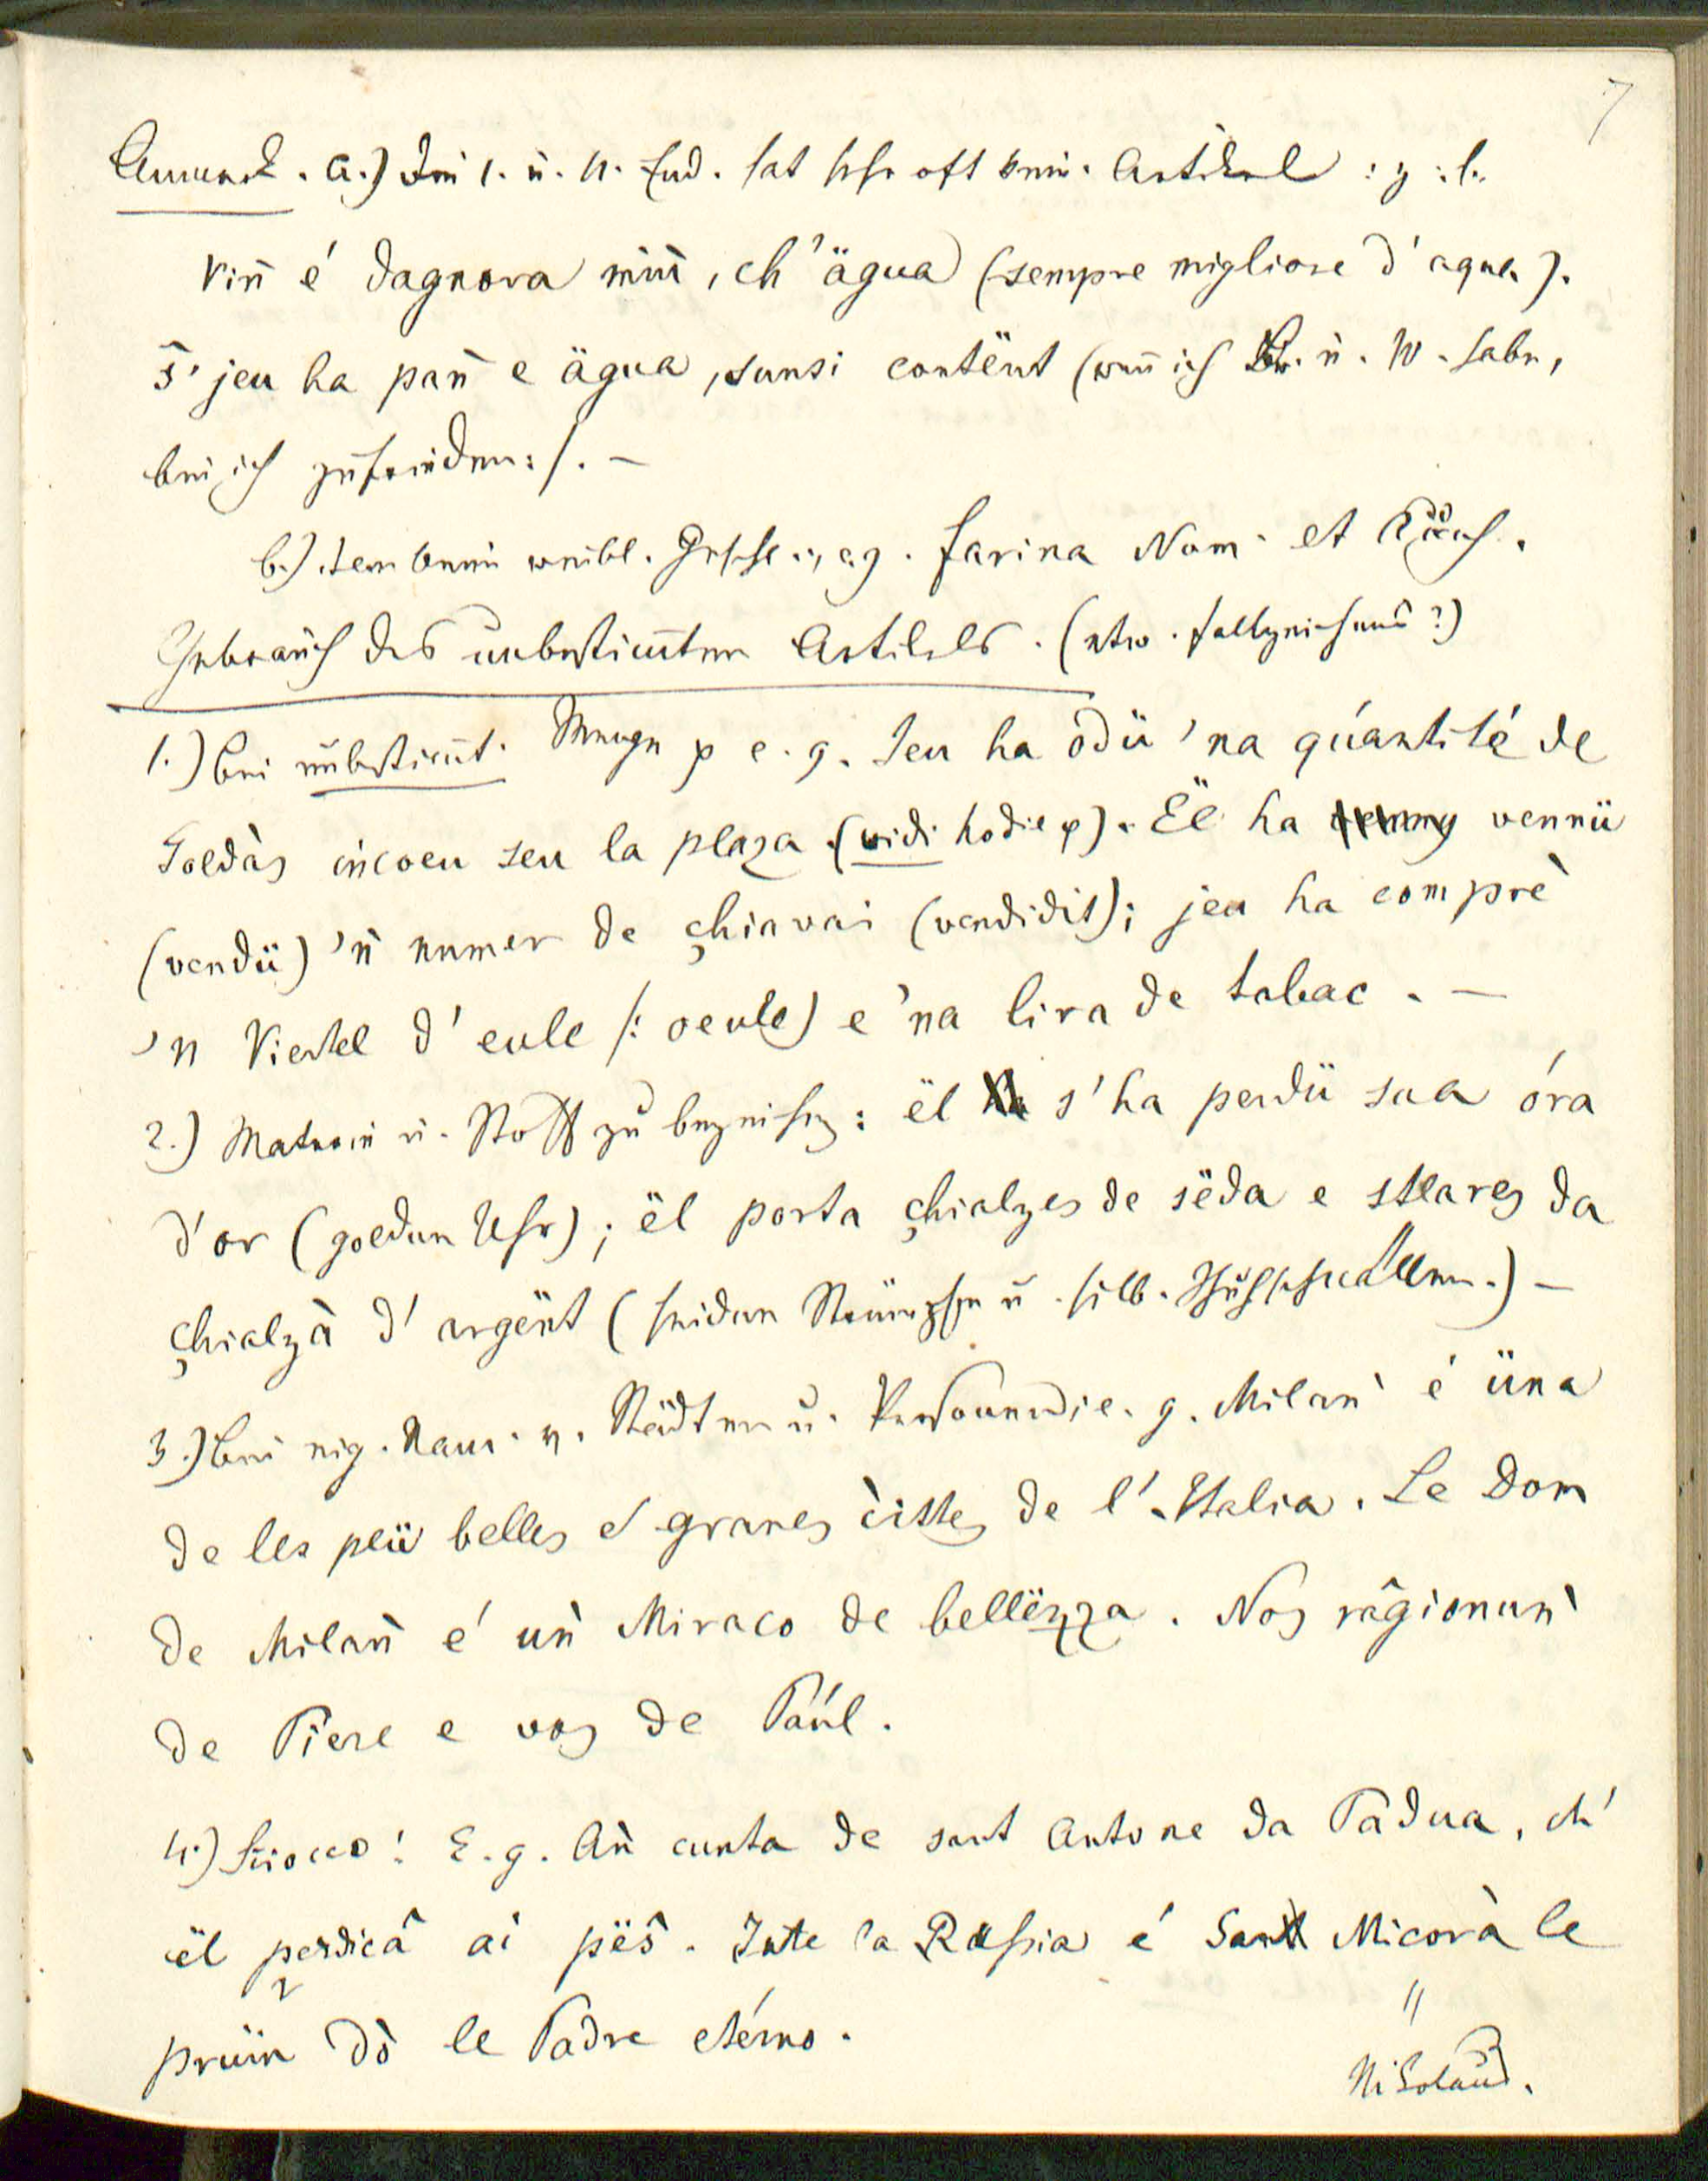 7
Anmerk. a.) Der 1. u. 4. End. hat sehr oft kein. Artikel : z : b.
Viñ é dagnora miũ, ch' ägua (sempre migliore d'aqua).
S' jeu ha pañ e ägua, sunsi contënt (wenn ich Br. u. W. habe,
bin ich zufrieden :/. –
b.) item beim weibl. Geschl., e. g. farina Nom. et
Gebrauch des unbestim̄ten Artikels. (etw. Fallzeichens?)
1.) bei unbestim̄t. Menge p e. g. Jeu ha odü 'na quantité de
Soldàs incoeu seu la plaza (vidi hodie p). Ël ha vennü
(vendü) 'ǹ numer de çhiavai (vendidit); jeu ha comprè
'n Viertel d' eule /: oeule) e 'na lira de tabac. –
2.) Materie u. Stoff zu bezeichn: ël s'ha perdü sua óra
d'or (goldene Uhr); ël porta çhialzes de sëda e stlares da
çhialzà d' argënt (seidene Strümpfe u. silb. Schuhschnallen.) –
3.) bei eig. Nam. v. Städten u. Personen; e. g. Milaǹ é üna
de les peü belles e granes cittes de l' Italia. Le Dom
de Milaǹ é uǹ Miraco de bellëzza. Nos râgionuǹ
de Piere e vos de Paúl.
4.) E. g. Aǹ cunta de sant Antone da Padua, ch'
ël perdicâ ai pës. Inte la Russia é San Micorà le
prüm dò le Padre etérno.
"
Nikolaus.